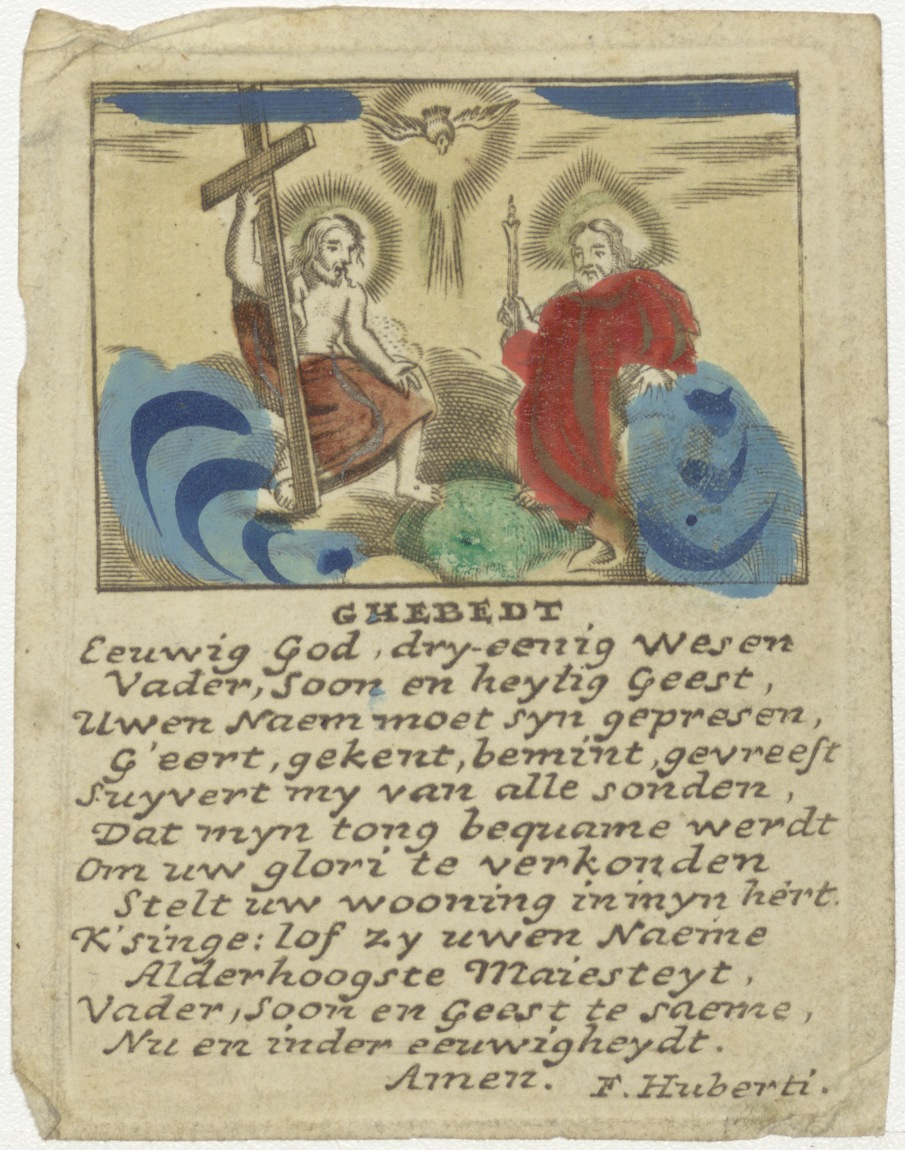 GHEBEDT
Eeuwig God, dry-eenig Wesen
Vader, Soon en heylig Geest,
Uwen Naem moet syn gepresen,
G'eert, gekent, bemint, gevreest
Suyvert my van alle sonden,
Dat myn tong bequame werdt
Om uw glori te verkonden
Stelt uw wooning in myn hert.
K'singe: lof zy uwen Naeme
Alderhoogste Maiesteyt,
Vader, Soon en Geest te saeme,
Nu en inder eeuwigheydt.
Amen. F. Huberti.